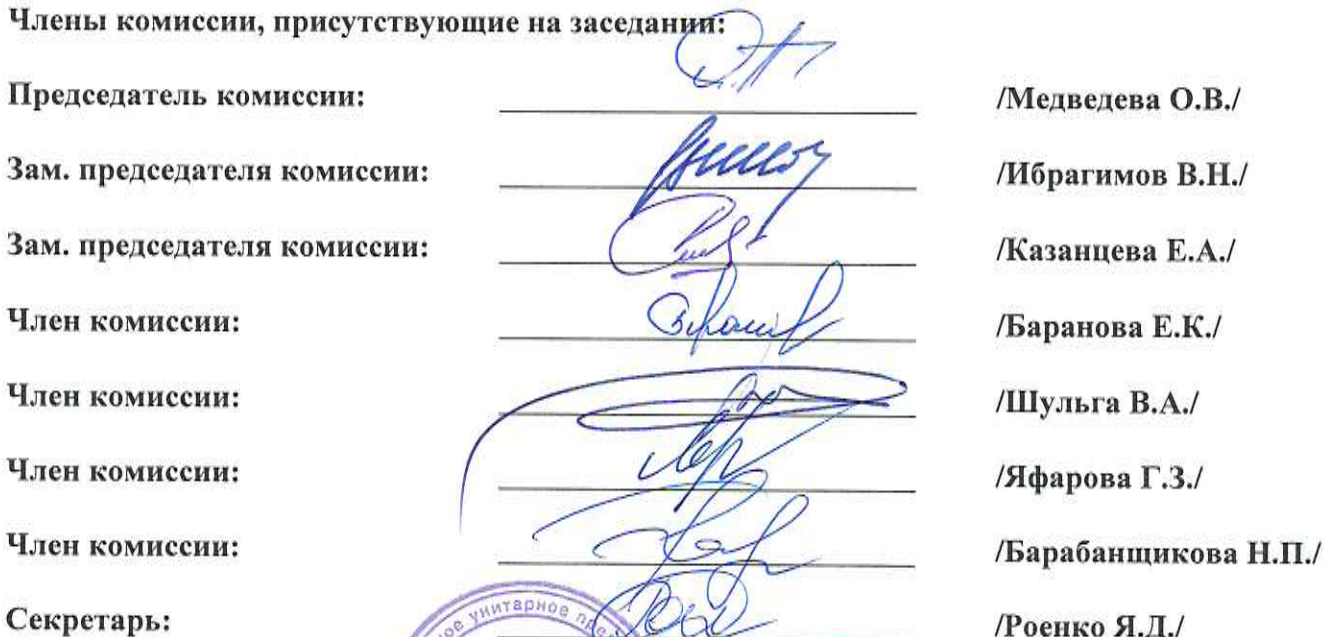 Члены комиссии, присутствующие на заседании:
Председатель комиссии: /Медведева О.В./
Зам. председателя комиссии: /Ибрагимов В.Н./
Зам. председателя комиссии: /Казанцева Е.А./
Член комиссии: /Баранова Е.К./
Член комиссии: /Шульга В.А./
Член комиссии: /Яфарова Г.З./
Член комиссии: /Барабанщикова Н.П./
Секретарь: /Роенко Я.Д./
унитарное